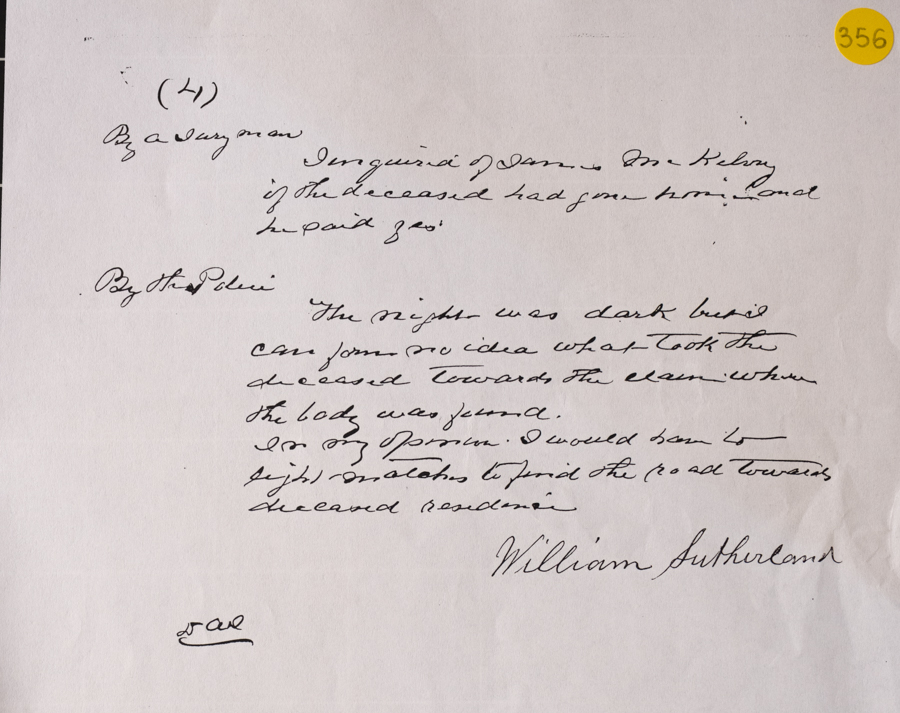 356
(4)
By a Juryman
I enquired of James McKelvy
if the deceased had gone home and
he said yes
By the Police
The night was dark but I
can form no idea what took the
deceased towards the claim where
the body was found.
In my opinion. I would have to
light matches to find the road towards
deceased residence
William Sutherland